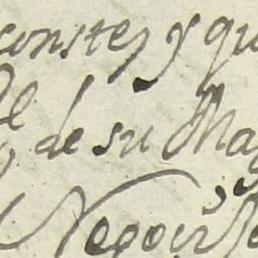 conste, y qu
de su Mag
Negoci